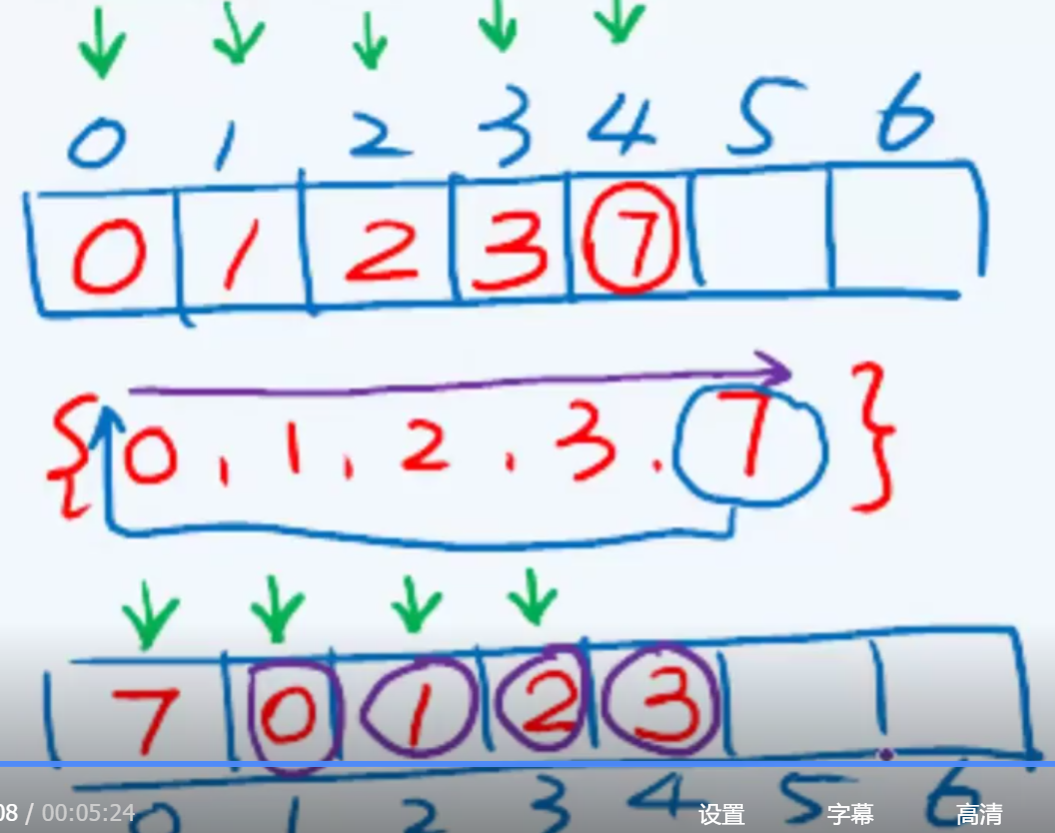 0 1 2 3 4 5 6
0 1 2 3 7
{0, 1, 2, 3, 7}
7 0 1 2 3
0 1 2 3 4 5 6
08 / 00:05:24 设置 字幕 高清